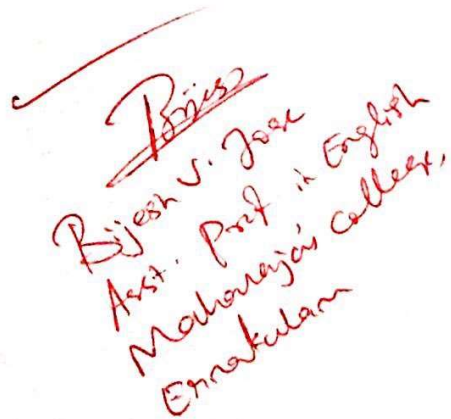 Bijesh
Bijesh V. Jose
Asst. Prof in English
Maharaja's College,
Ernakulam